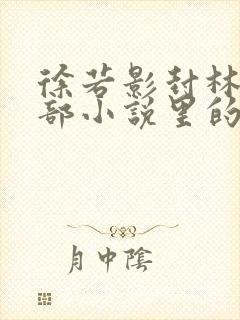 徐若影封林
部小说里的
月中陰